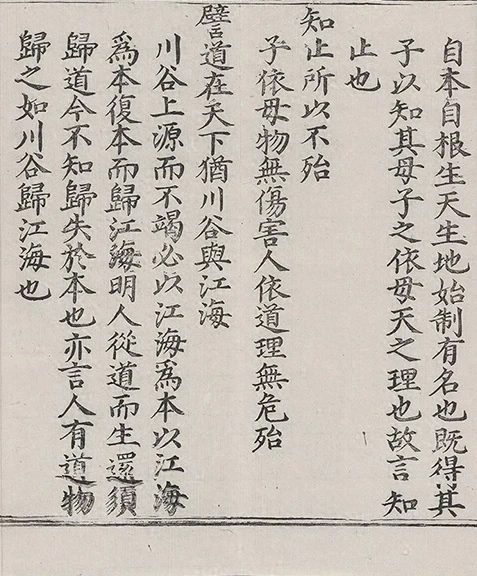 自本自根生天生地始制有名也既得其
子以知其母子之依母天之理也故言知
止也
知止所以不殆
子依母物無傷害人依道理無危殆
譬道在天下猶川谷與江海
川谷上源而不竭必以江海爲本以江海
爲本復本而歸江海明人從道而生還須
歸道今不知歸失於本也亦言人有道物
歸之如川谷歸江海也